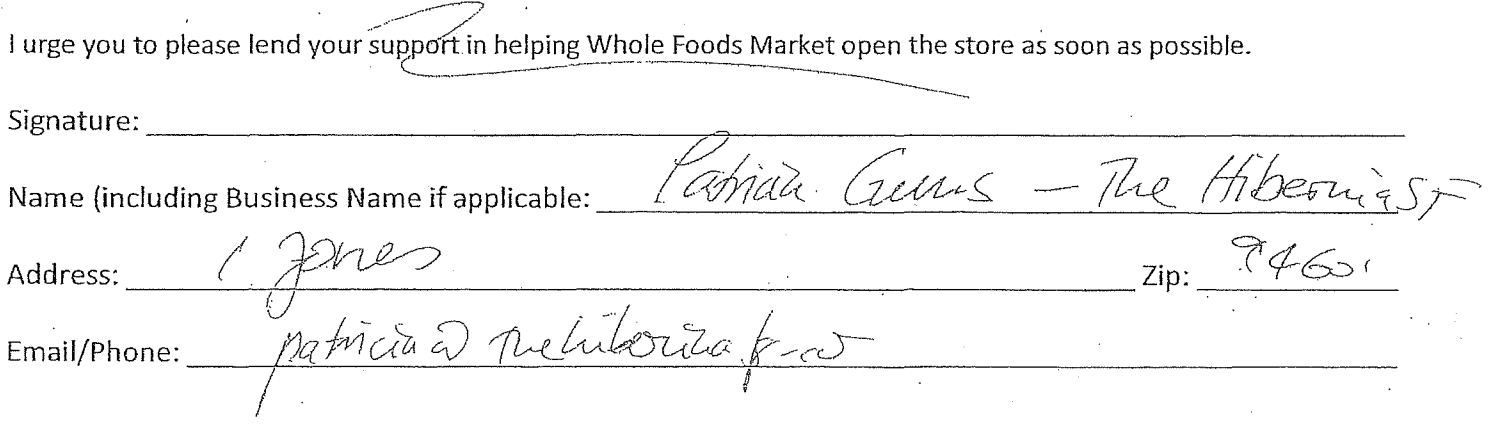 I urge you to please lend your support in helping Whole Foods Market open the store as soon as possible.
Signature:
Name (including Business Name if applicable: — The Hibernia SF
Address: 1 Jones Zip:
Email/Phone: patricia@